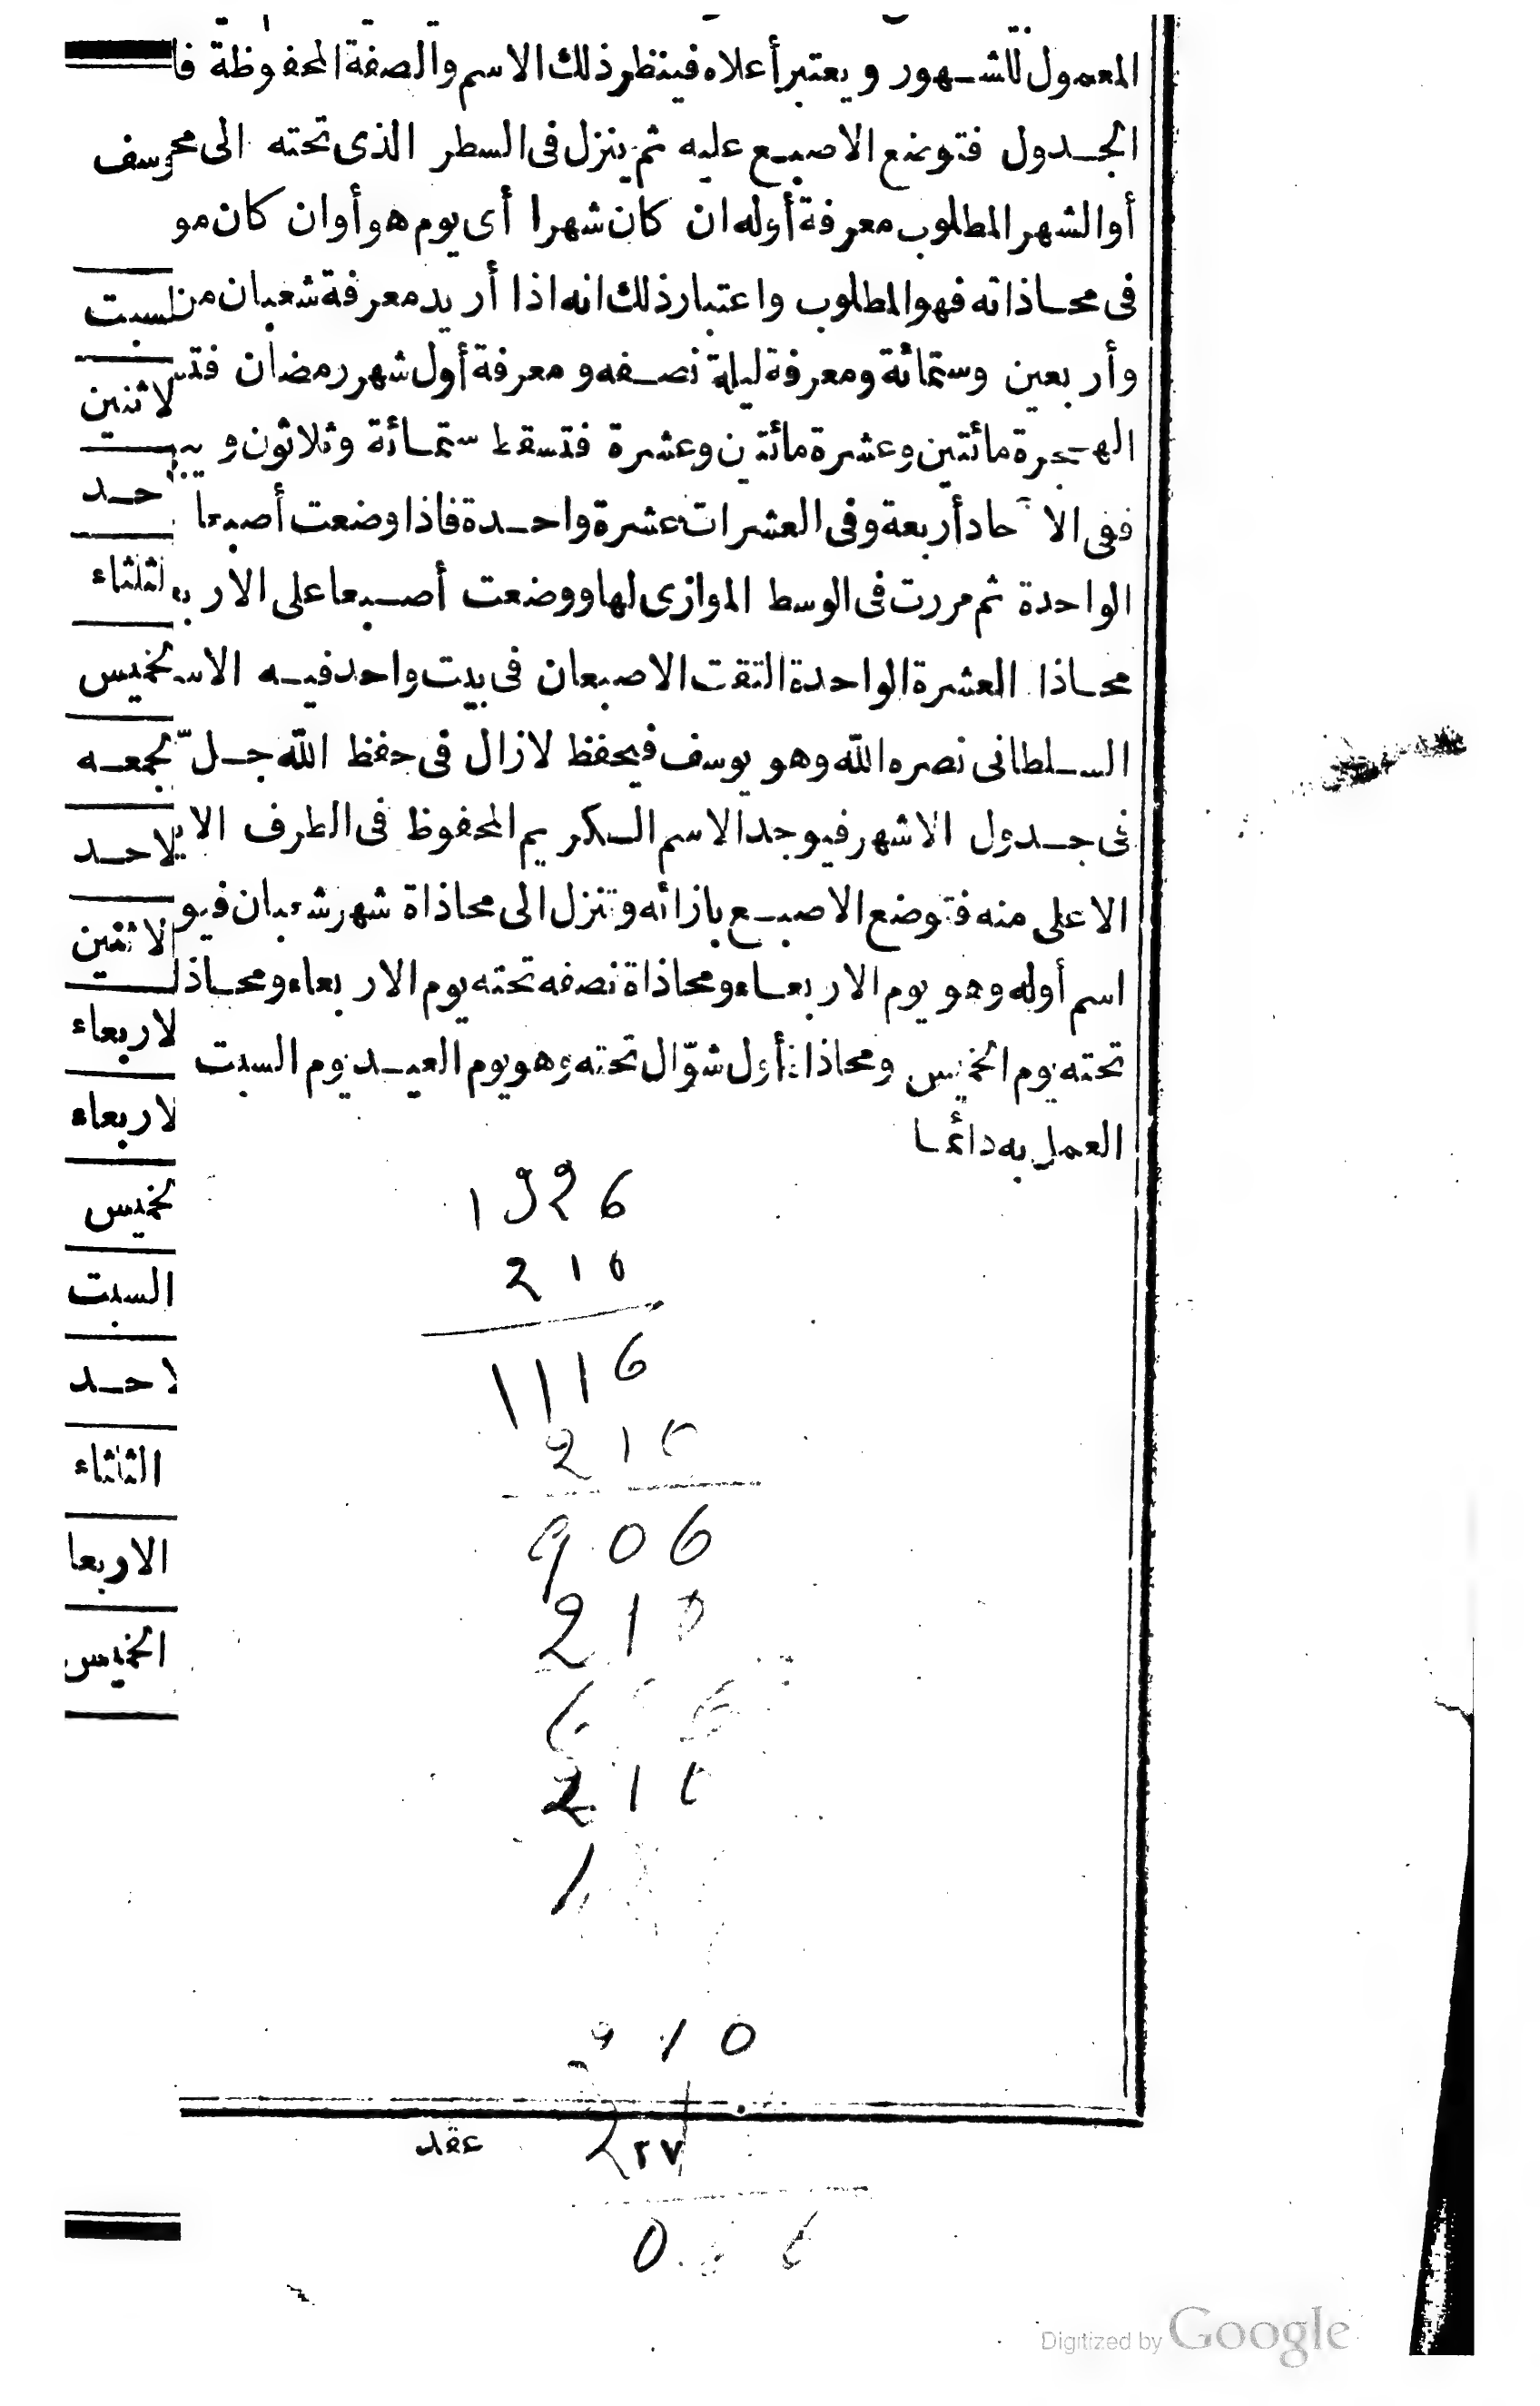 المعمول للشهور ويعتبر أعلاه فينظر ذلك الاسم والصفة المحفوظة فا
الجدول فتوضع الاصبع عليه ثم ينزل فى السطر الذى تحته الى مح
أو الشهر المطلوب معرفة أوله ان كان شهرا أى يوم هو أو ان كان مو
فى محاذاته فهو المطلوب واعتبار ذلك انه اذا أريد معرفة شعبان من
وأربعين وستمائة ومعرفة ليلة نصفه ومعرفة أول شهر رمضان فتس
الهجرة مائتين وعشرة مائتين وعشرة فتسقط ستمائة وثلاثون و
ففى الآحاد أربعة وفى العشرات عشرة واحدة فاذا وضعت أصبعا
الواحدة ثم مررت فى الوسط الموازى لها ووضعت أصبعا على الار
محاذا العشرة الواحدة التقت الاصبعان فى بيت واحد فيه الاس
السلطانى نصره الله وهو يوسف فيحفظ لازال فى حفظ الله جل
فى جدول الاشهر فيوجد الاسم الكريم المحفوظ فى الطرف الاي
الاعلى منه فتوضع الاصبع بازائه وتنزل الى محاذاة شهر شعبان فيو
اسم أوله وهو يوم الاربعاء ومحاذاة نصفه تحته يوم الاربعاء ومحاذ
تحته يوم الخميس ومحاذاة أول شوّال تحته وهو يوم العيد يوم السبت
العمل به دائما
وسف
لسبت
لاثنين
حد
لثلثاء
لخميس
لجمعه
لاحد
الاثنين
لاربعاء
لاربعاء
لخميس
السبت
لاحد
الثلثاء
الاربعا
الخميس
1326
210
1116
210
906
210
6 6
210
210
٢٧
عقد
Digitized by Google